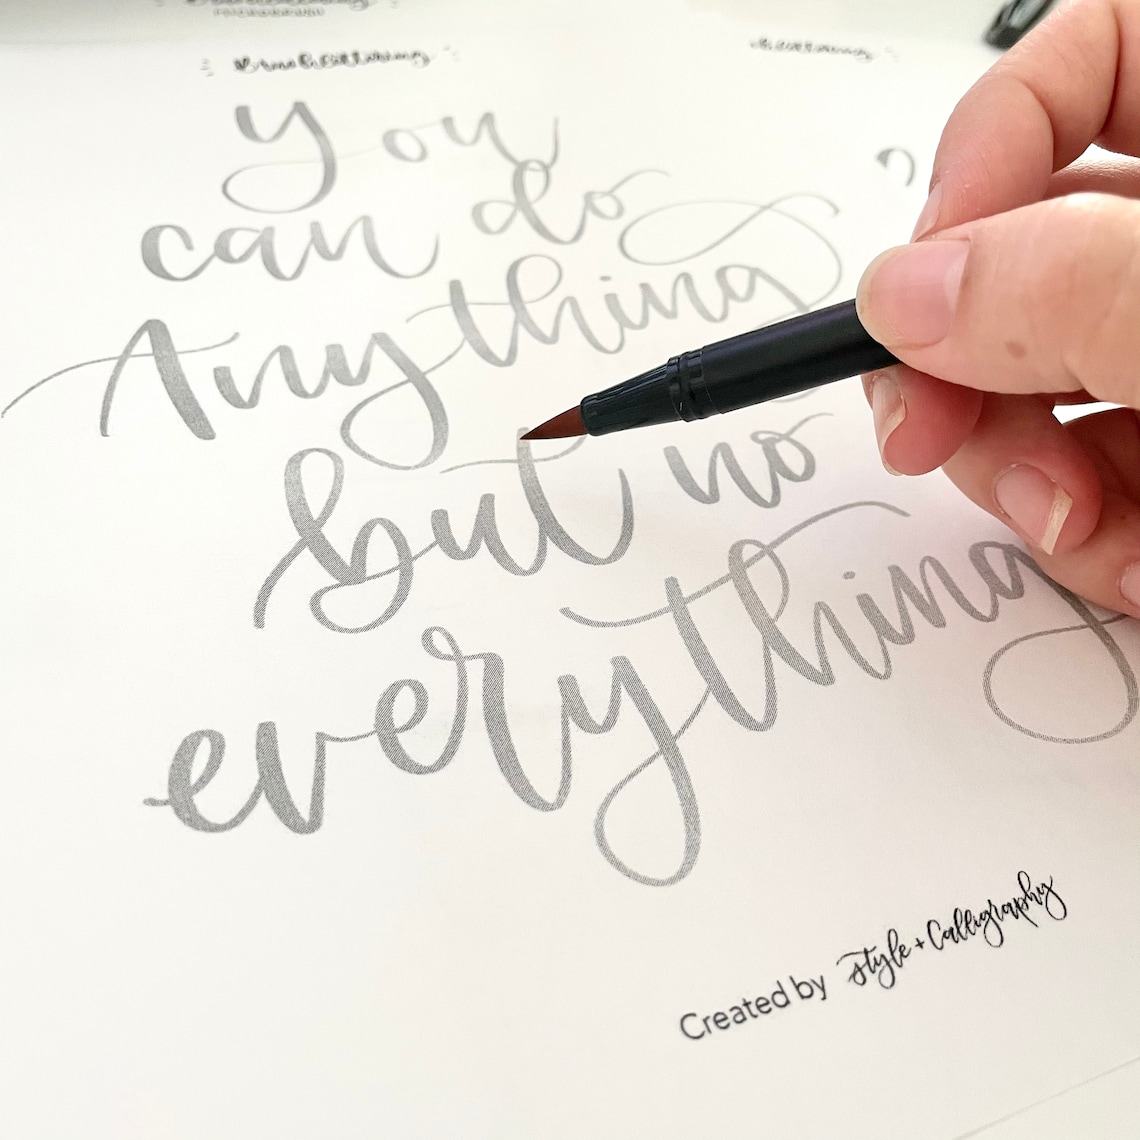 you
can do
Anything
but no
everything
Created by style + Calligraphy